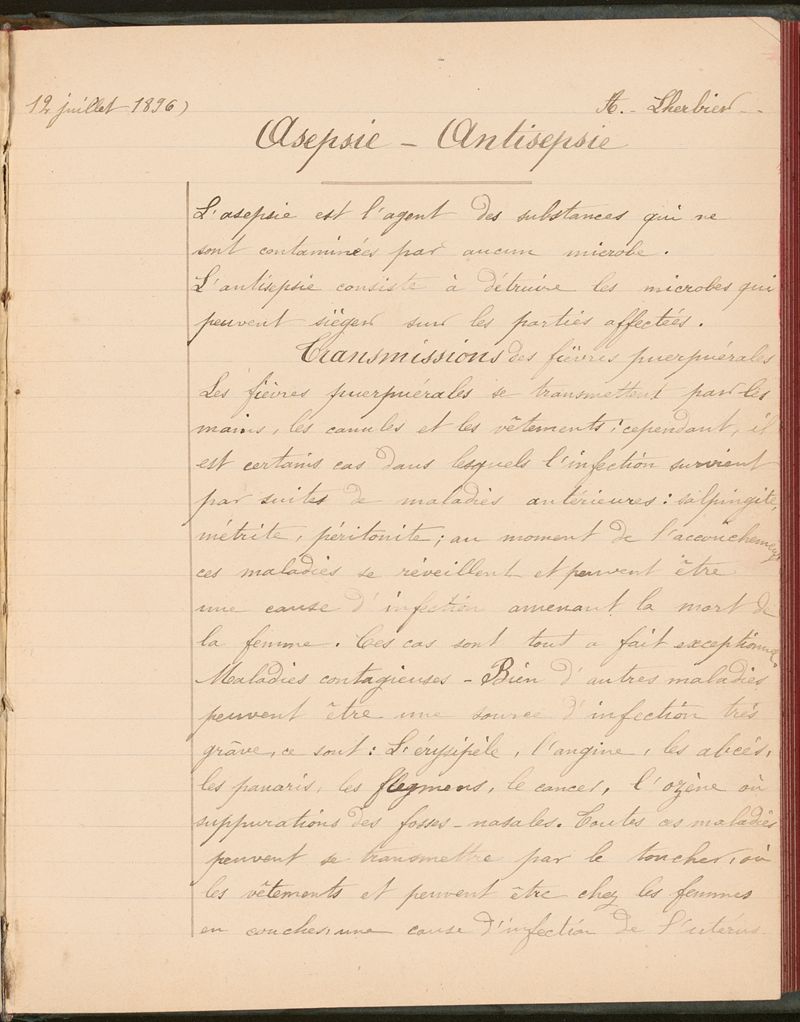 12 juillet 1896)
A. - Lherbier -
Asepsie - Antisepsie
L'asepsie est l'agent des substances qui ne
sont contaminées par aucun microbe.
L'antisepsie consiste à détruire les microbes qui
peuvent siéger sur les parties affectées.
Transmissions des fièvres puerpuérales
Les fièvres puerpuérales se transmettent par les
mains, les canules et les vêtements; cependant, il
est certains cas dans lesquels l'infection survient
par suites de maladies antérieures: salpingite,
métrite, péritonite; au moment de l'accouchement
ces maladies se réveillent et peuvent être
une cause d'infection amenant la mort de
la femme. Ces cas sont tout a fait
Maladies contagieuses - Bien d'autres maladies
peuvent être une source d'infection très
grâve, ce sont: L'érysipèle, l'angine, les abcès,
les panaris, les flegmons, le cancer, l'ozène où
suppurations des fosses-nasales. Toutes ces maladies
peuvent se transmettre par le toucher, où
les vêtements et peuvent être chez les femmes
en couches, une cause d'infection de l'utérus